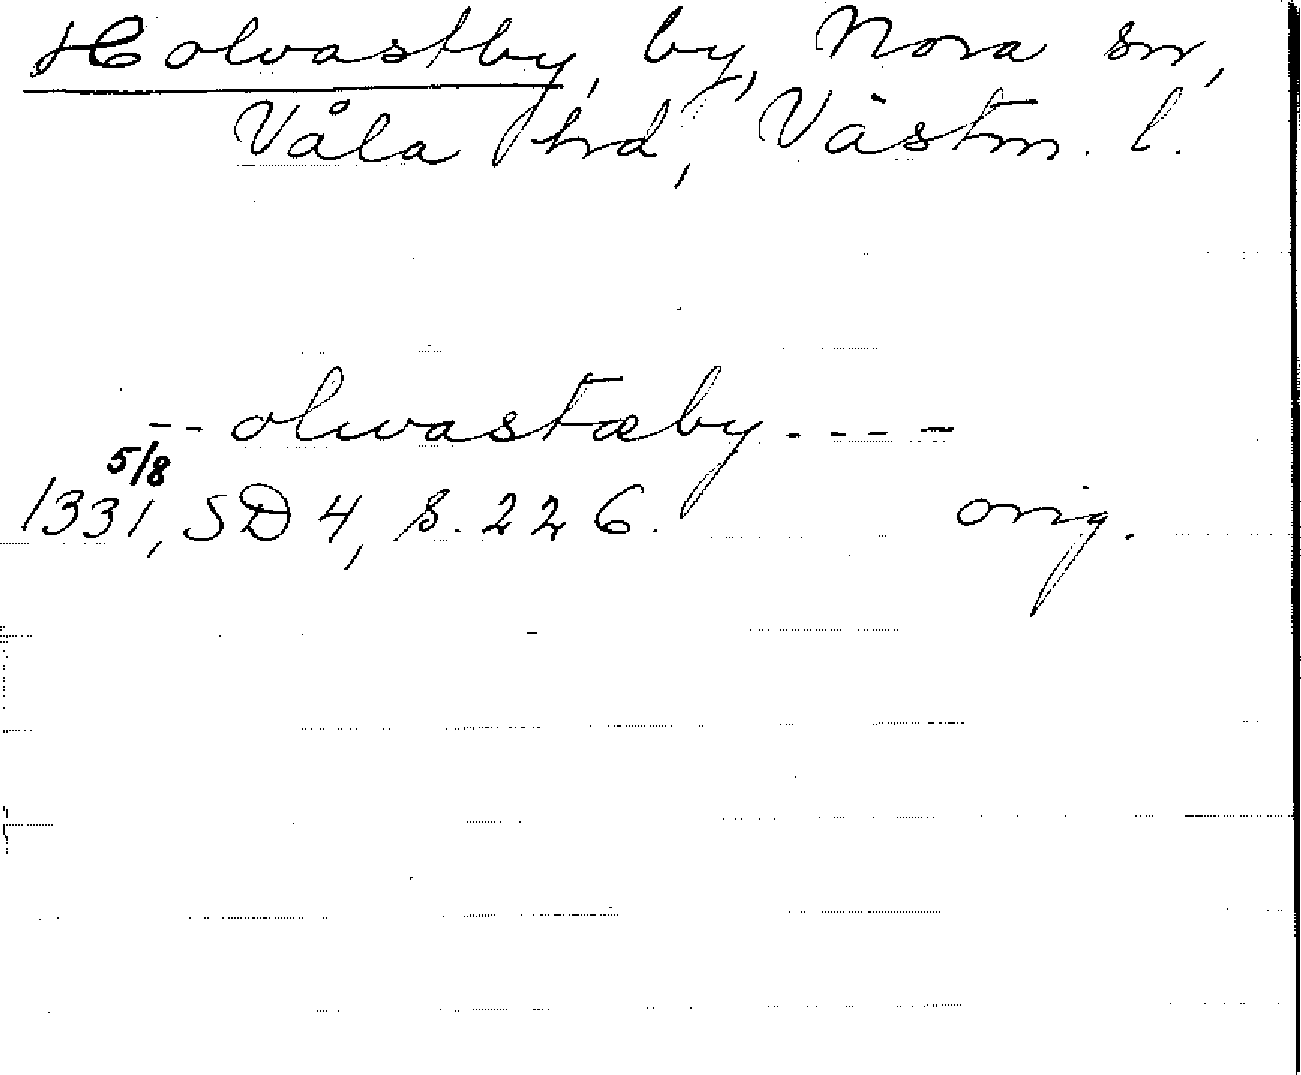 Holvastby, by, Nora sn,
Våla hd, Västm. l.
-- olwastæby ----
5/8
1331, SD 4, s. 226. orig.